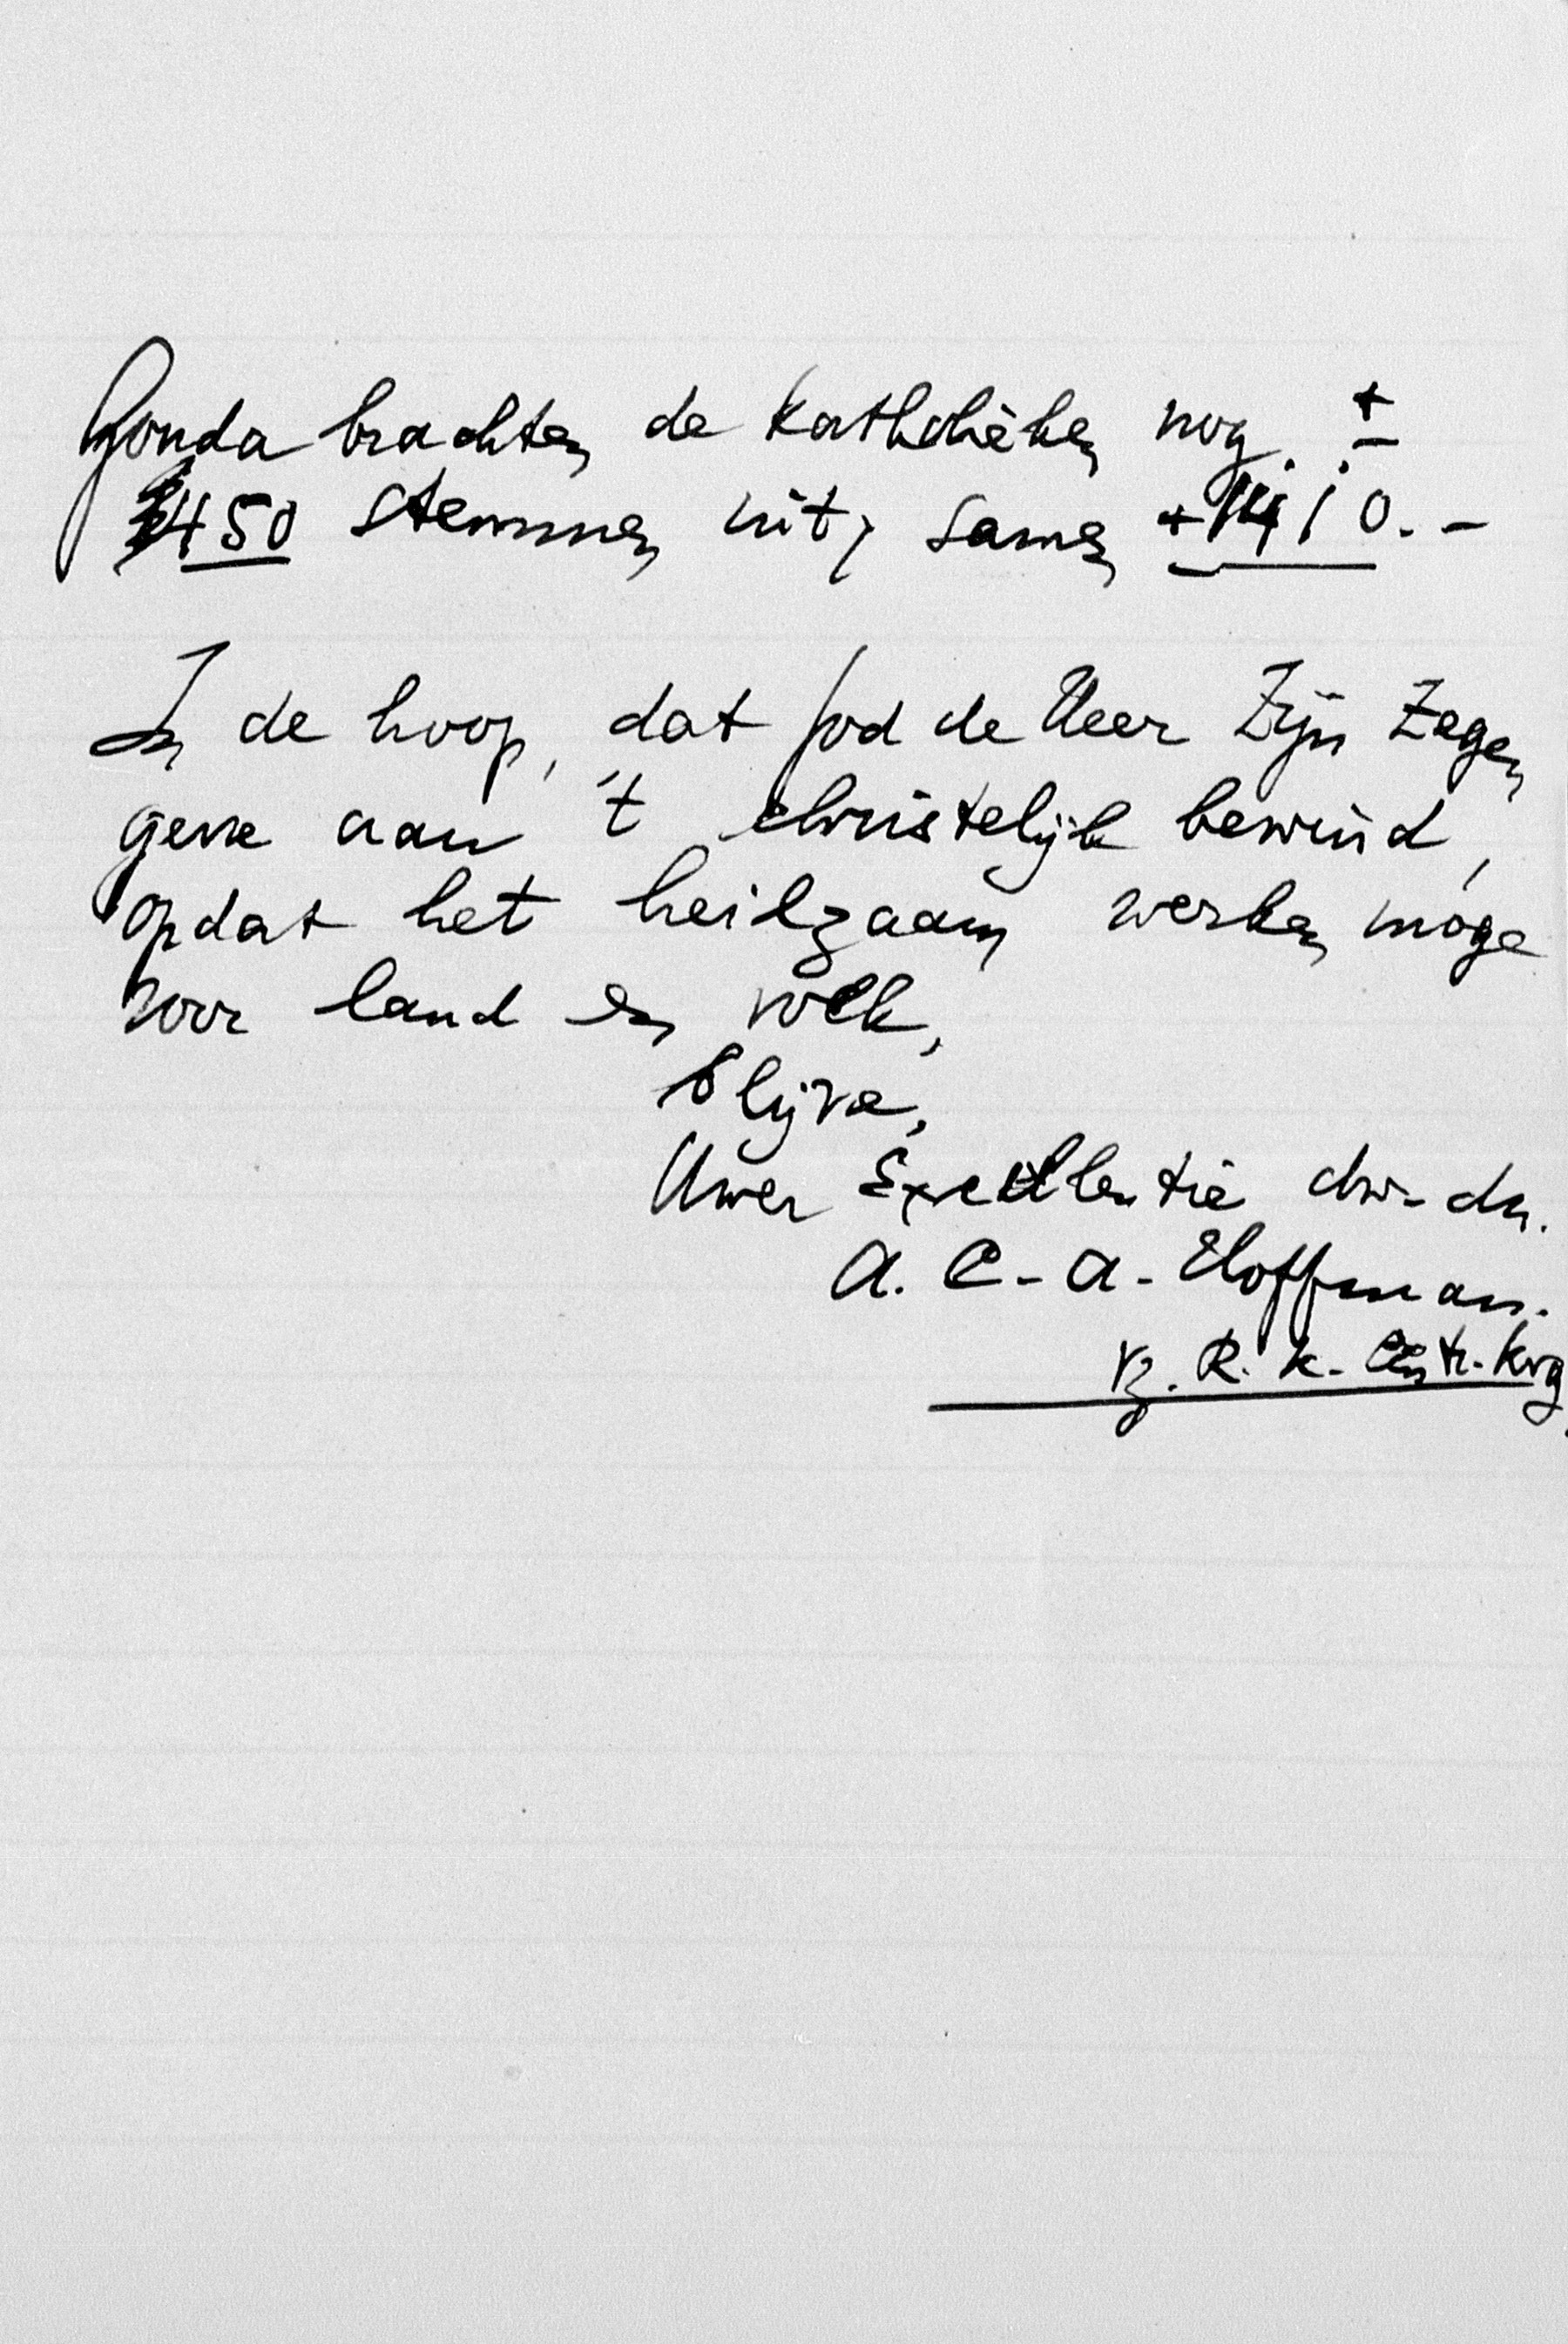 Gouda brachten de Katholieken nog ±
450 stemmen uit, samen ± 1410.-
In de hoop, dat God de Heer Zijn Zegen
geve aan 't christelijk bewind,
opdat het heilzaam werken moge
voor land en volk,
blijve,
Uwer Excellentie dw. dn.
A. C. A. Hoffman.
Vz. R. K. Centr. Kvg.